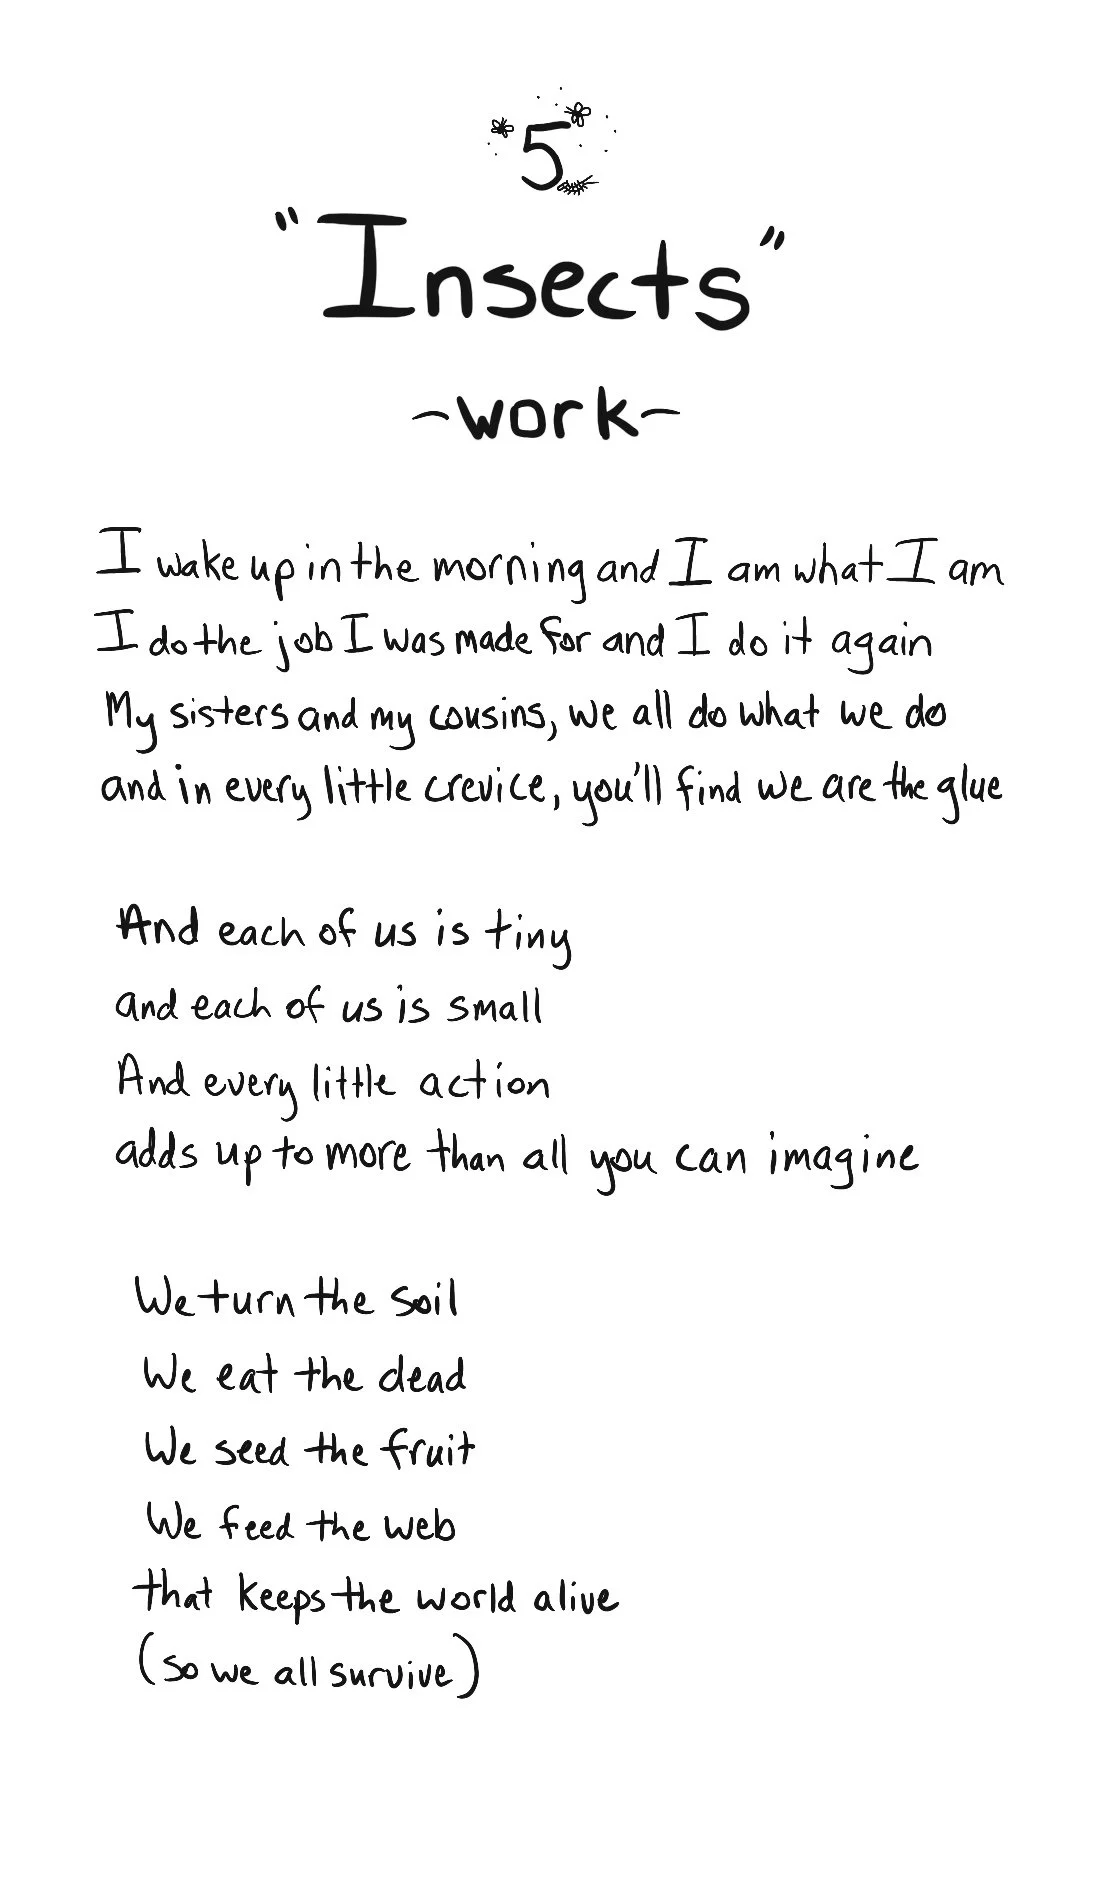 5
"Insects"
~work~
I wake up in the morning and I am what I am
I do the job I was made for and I do it again
My sisters and my cousins, we all do what we do
and in every little crevice, you'll find we are the glue
And each of us is tiny
and each of us is small
And every little action
adds up to more than all you can imagine
We turn the soil
We eat the dead
We seed the fruit
We feed the web
that keeps the world alive
(so we all survive)